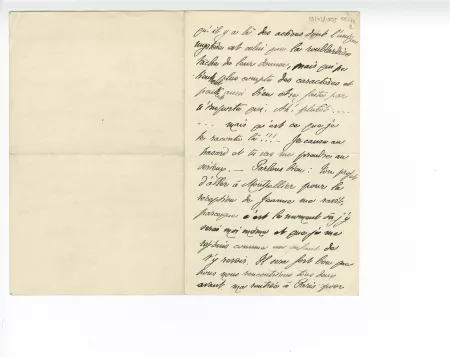 qu'il y a là des actions dont l'unique
mystère est celui que la
tâche de leur donner, mais qui ne
tient plus compte des caractères et
aussi bien être faites par
n'importe qui. Ah! plutôt ....
... mais qu'est ce que je
te raconte là!!! - Je cause au
hasard et tu vas me prendre au
sérieux. — Parlons bien: Ton projet
d'aller à Montpellier pour la
réception de Jeanne me ravit
parceque c'est le moment où j'y
serai moi même et que je me
réjouis comme un enfant de
t'y revoir. Il sera fort bon que
nous nous rencontrions tous deux
avant ma rentrée à Paris pour